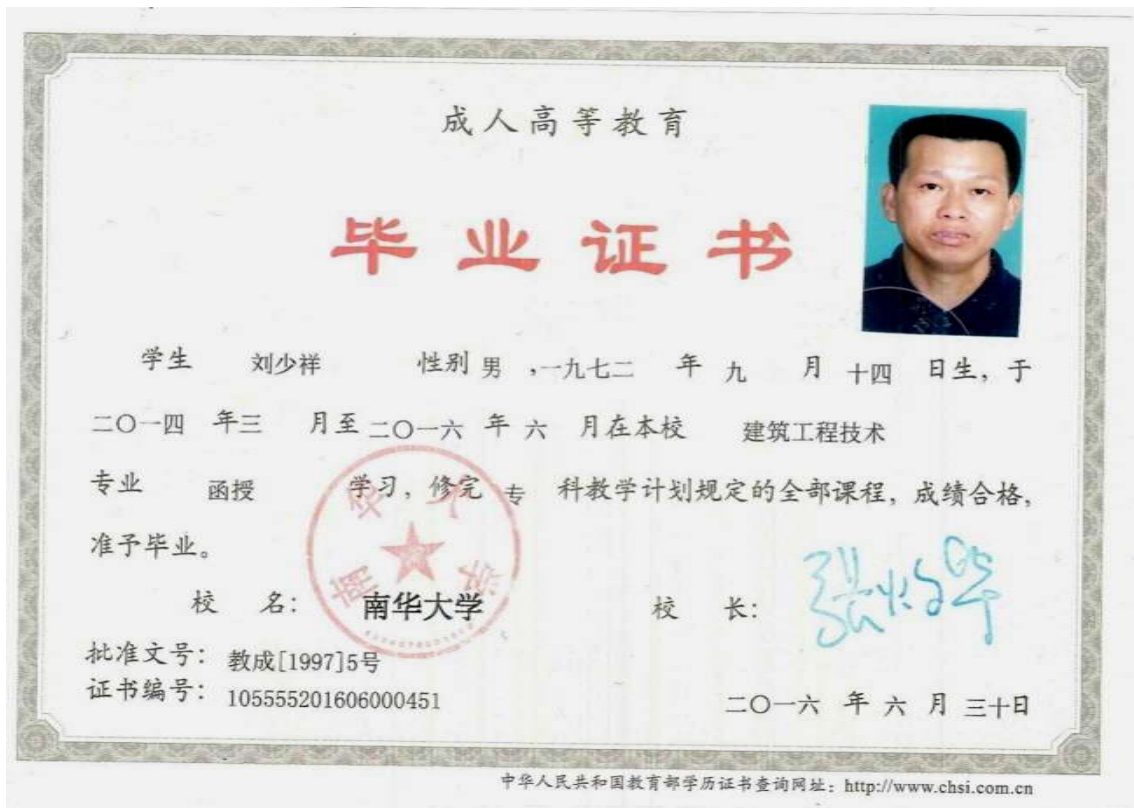 成人高等教育
毕业证书
学生 刘少祥 性别 男 ,一九七二 年 九 月 十四 日生, 于
二〇一四 年三 月至 二〇一六 年 六 月在本校 建筑工程技术
专业 函授 学习, 修完 专 科教学计划规定的全部课程, 成绩合格,
准予毕业。
南华大学
校 名: 南华大学 校 长:
批准文号: 教成[1997]5号
证书编号: 105555201606000451
二〇一六 年 六 月 三十日
中华人民共和国教育部学历证书查询网址: http://www.chsi.com.cn